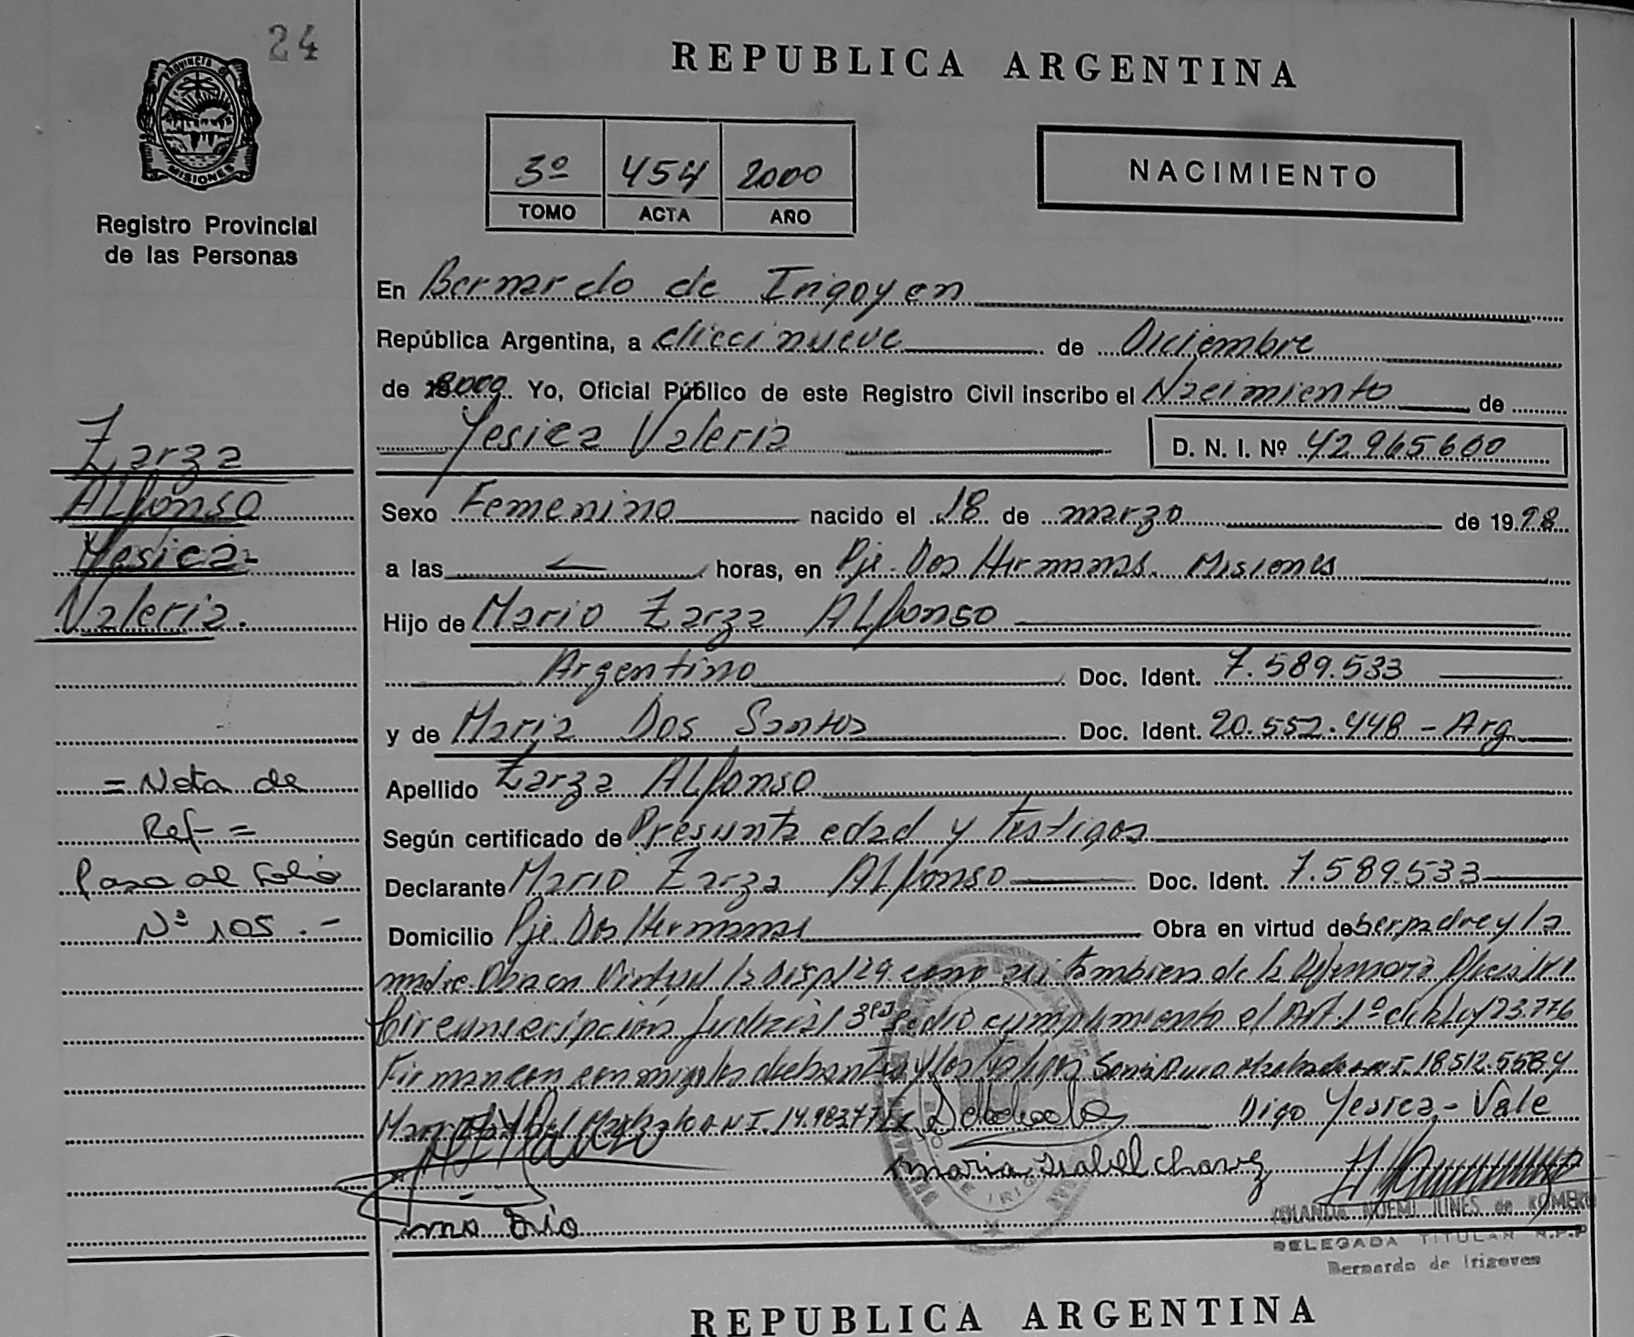 24
REPUBLICA ARGENTINA
PROVINCIA D
MISIONES
Registro Provincial
de las Personas
3º 454 2000
TOMO ACTA AÑO
NACIMIENTO
En Bernardo de Irigoyen
República Argentina, a diecinueve de Diciembre
de 2000 Yo, Oficial Público de este Registro Civil inscribo el Nacimiento de
Yesica Valeria D. N. I. Nº 42.965.600
Zarza
ALfonso
Yesica-
Valeria.
Sexo Femenino nacido el 18 de marzo de 1998
a las horas, en Pje. Dos Hermanas. Misiones
Hijo de Mario Zarza ALfonso
Argentino Doc. Ident. 7.589.533
y de Maria Dos Santos Doc. Ident. 20.552.448 - Arg
Apellido Zarza ALfonso
Según certificado de Presunta edad y testigos
Declarante Mario Zarza ALfonso Doc. Ident. 7.589.533
Domicilio Pje. Dos Hermanas Obra en virtud de ser padre y la
= Nota de
Ref =
Pasa al Folio
Nº 105.-
madre. Obra en Virtud la Disp 129 como asi tambien de la
Circunscripción Judicial 3ra cumplimiento el Art. 1º de la Ley 23.776
Firman con migo los y los testigos 18.512.558 y
D N I. Digo Yesica - Vale
maria Isabel chavez
YOLANDA NOEMI de ROMERO
DELEGADA TITULAR R.P.P
Bernardo de Irigoyen
REPUBLICA ARGENTINA